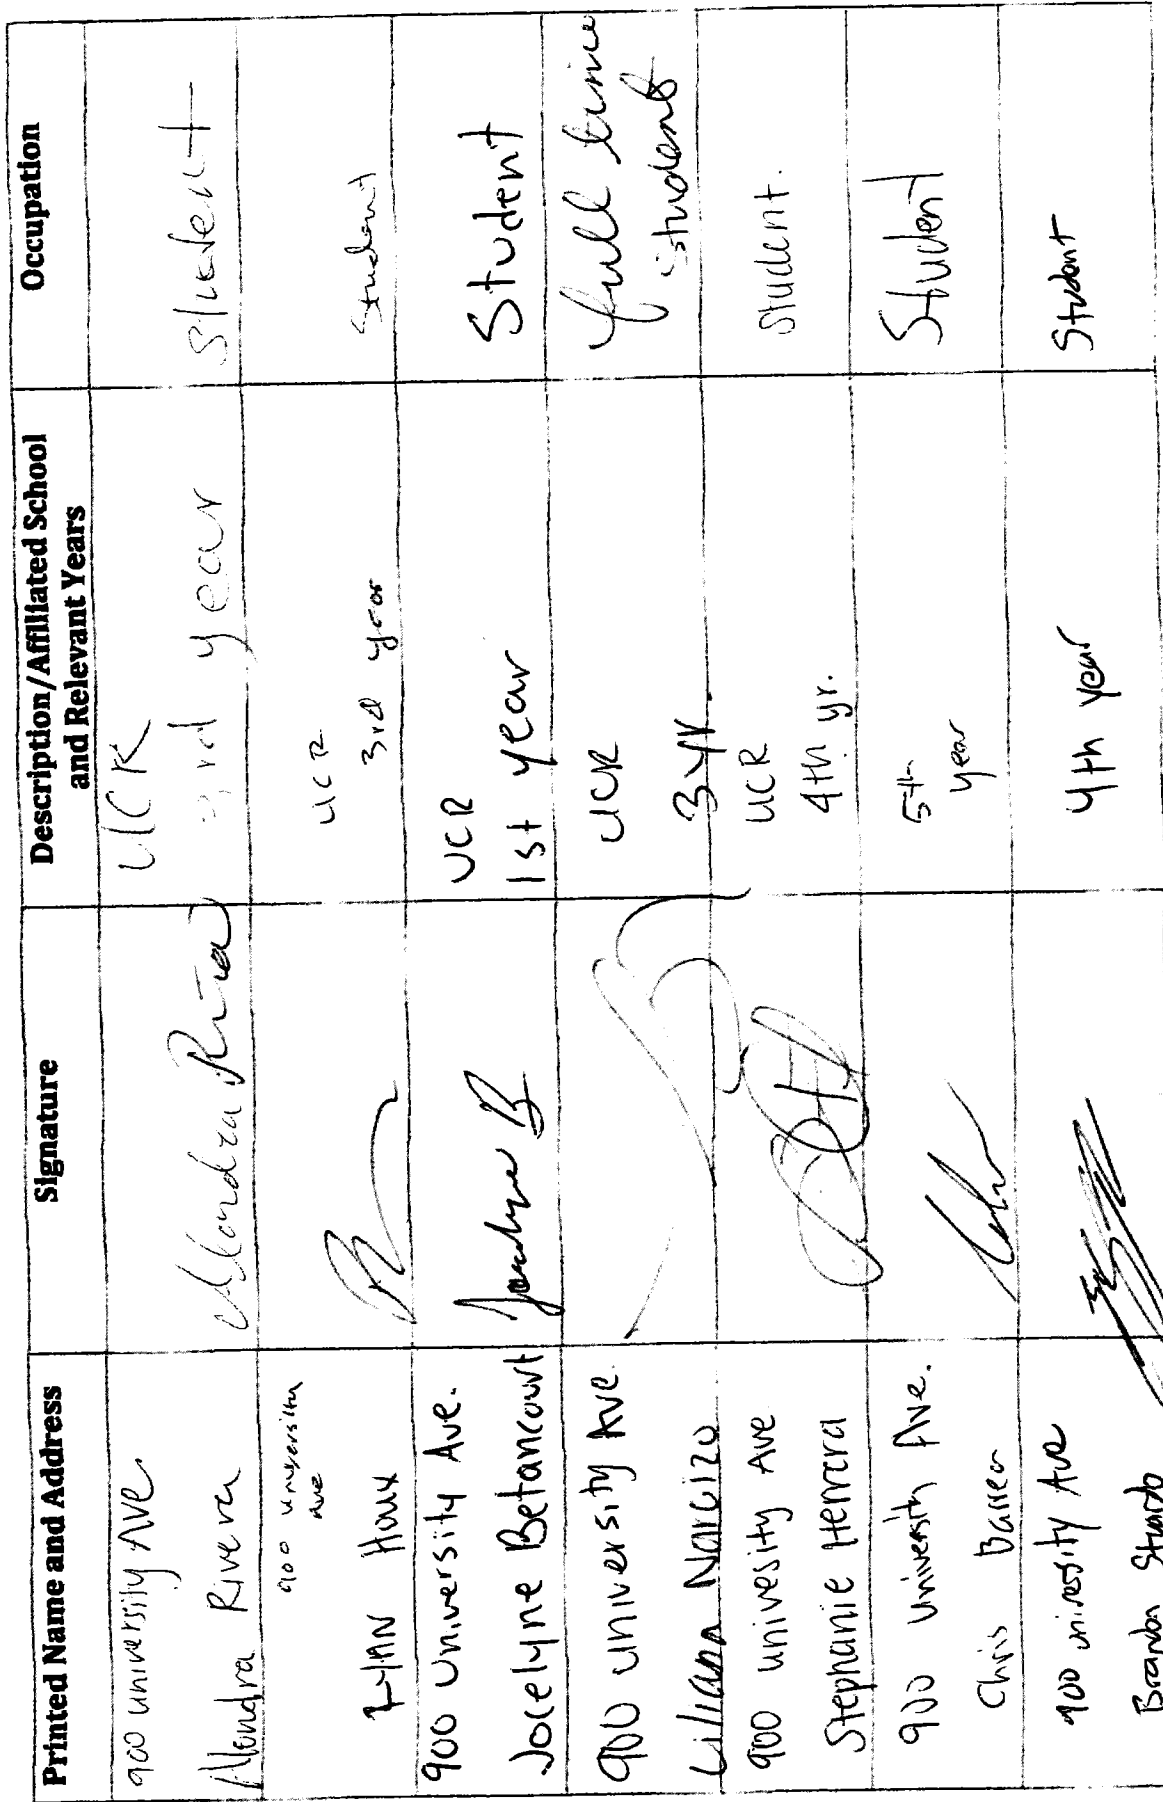 Printed Name and Address
Signature
Description/Affiliated School
and Relevant Years
Occupation
900 university Ave
Alondra Rivera
Alondra Rivera
UCR
3rd year
Student
900 University
Ave
RYAN Houx
UCR
3rd year
Student
900 University Ave.
Jocelyne Betancourt
Jocelyne B
UCR
1st year
Student
900 University Ave.
Liliana Narcizo
UCR
3 yr.
full time
student
900 univesity Ave
Stephanie Herrera
UCR
4th yr.
Student.
900 University Ave.
Chris
5th
year
Student
900 university Ave
Brandon
4th year
Student